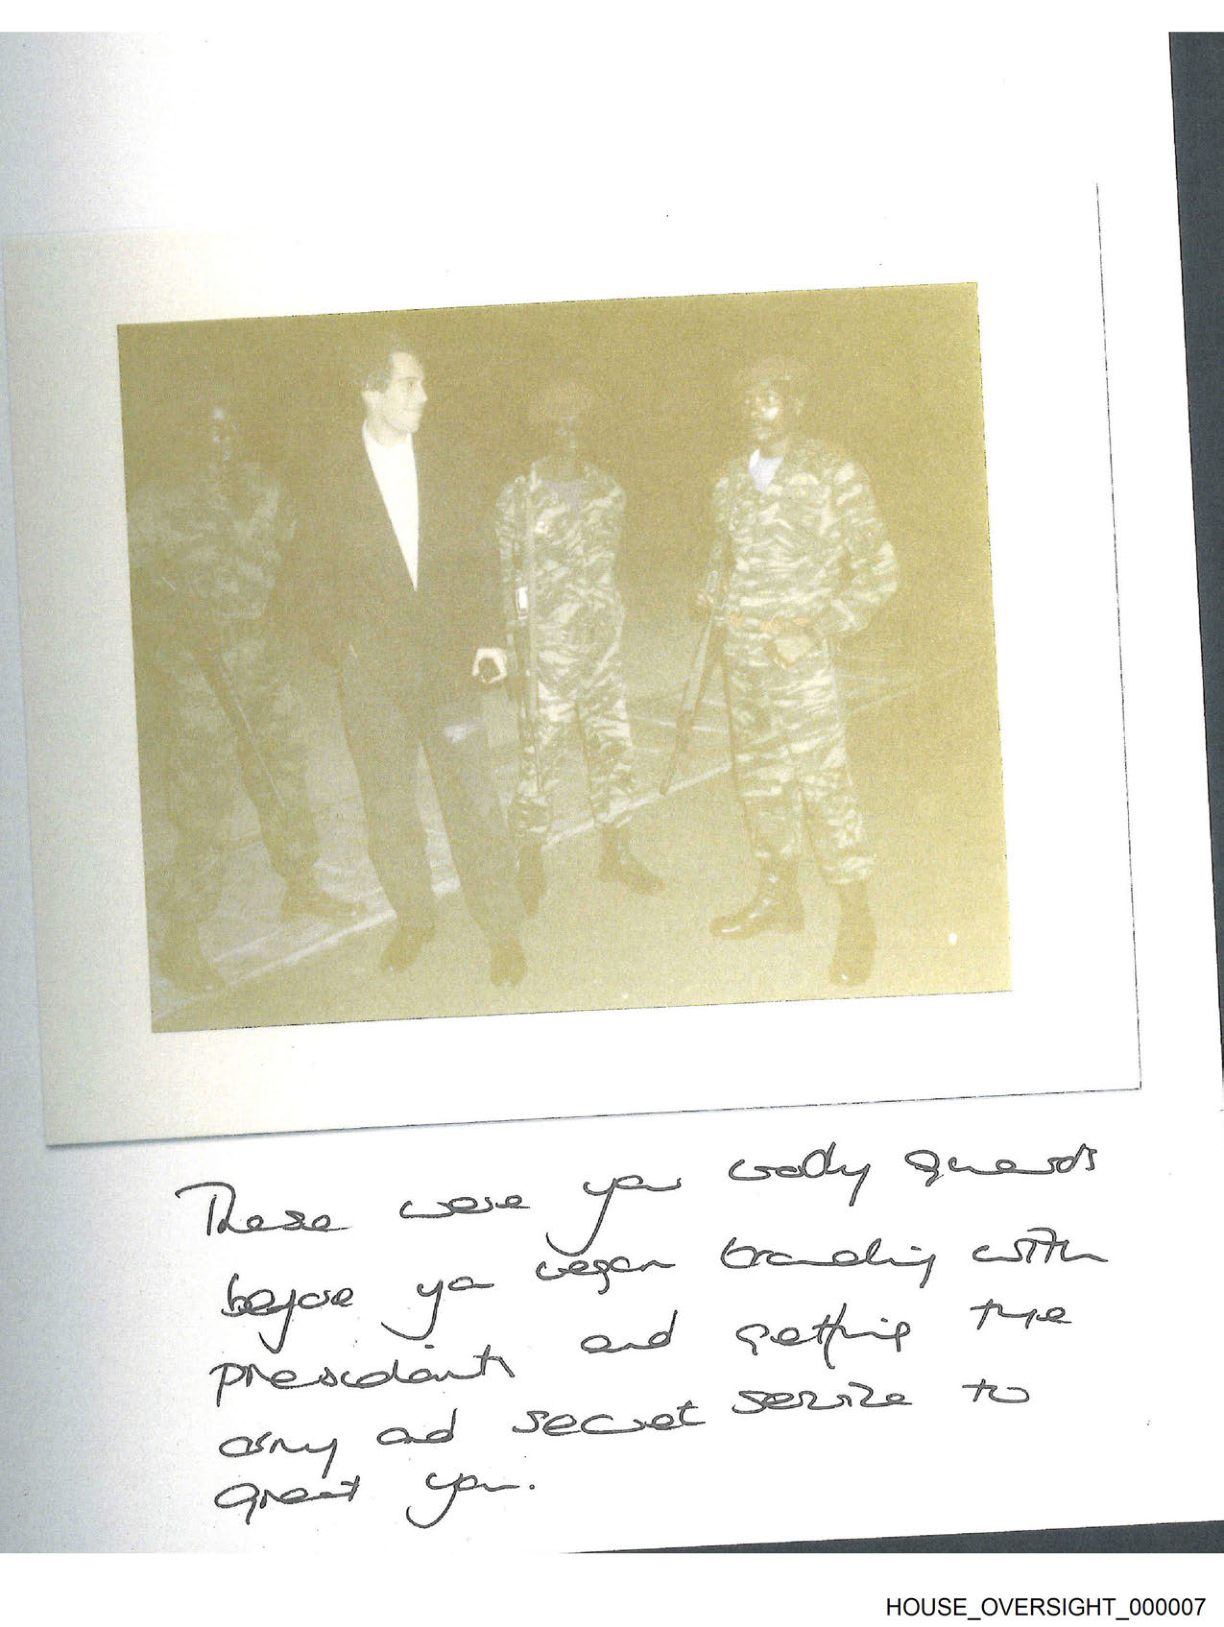 These were your body guards
before you began branding with
presidants and getting the
army and secret service to
greet you.
HOUSE_OVERSIGHT_000007